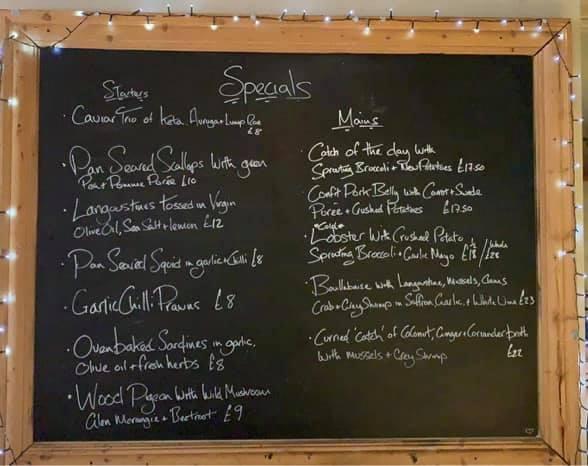 Specials
Starters
· Caviar Trio of Keta. Avruga + Lump Roe
£8
· Pan Seared Scallops with green
Pea + Pomme Purée £10
· Langoustines tossed in Virgin
Olive Oil, Sea Salt + lemon £12
· Pan Seared Squid in garlic + Chilli £8
· Garlic Chilli Prawns £8
· Oven baked Sardines in garlic,
Olive oil + fresh herbs £8
· Wood Pigeon with Wild Mushroom
Glen Morangie + Beetroot £9
Mains
· Catch of the day with
Sprouting Broccoli + New Potatoes £17.50
· Confit Pork Belly with Carrot + Swede
Purée + Crushed Potatoes £17.50
"Cold"
· Lobster with Crushed Potato,
Sprouting Broccoli + Garlic Mayo ½ £18 / Whole £28
· Bouillabaise with Langoustine, Mussels, Clams
Crab + Grey Shrimp in Saffron Garlic + White Wine £23
· Curried 'Catch' of Coconut, Ginger + Coriander broth
with mussels + Grey Shrimp
£22